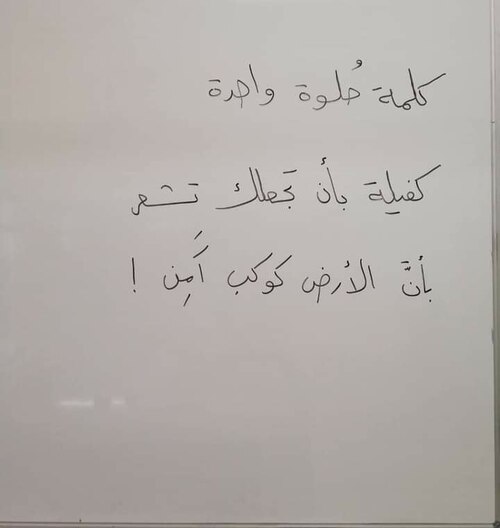 كلمة حُلوة واحدة
كفيلة بأن تجعلك تِشعر
بأنَّ الأرض كوكب آمِن !